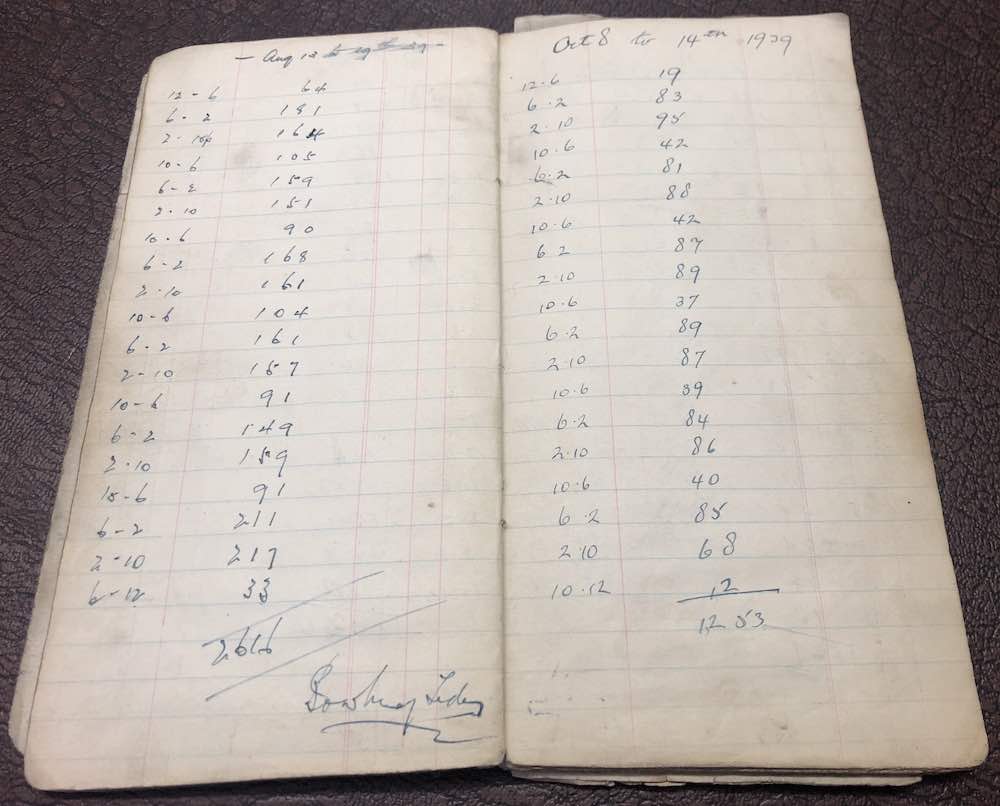 - Aug 13 to 19th 39 -
12-6 64
6-2 181
2-10 164
10-6 105
6-2 159
2-10 151
10-6 90
6-2 168
2-10 161
10-6 104
6-2 161
2-10 157
10-6 91
6-2 149
2-10 159
10-6 91
6-2 211
2-10 217
6-12 33
2616
Oct 8 to 14th 1939
12-6 19
6.2 83
2.10 95
10.6 42
6.2 81
2.10 88
10.6 42
6.2 87
2.10 89
10.6 37
6.2 89
2.10 87
10.6 39
6.2 84
2.10 86
10.6 40
6.2 85
2.10 68
10.12 12
1253